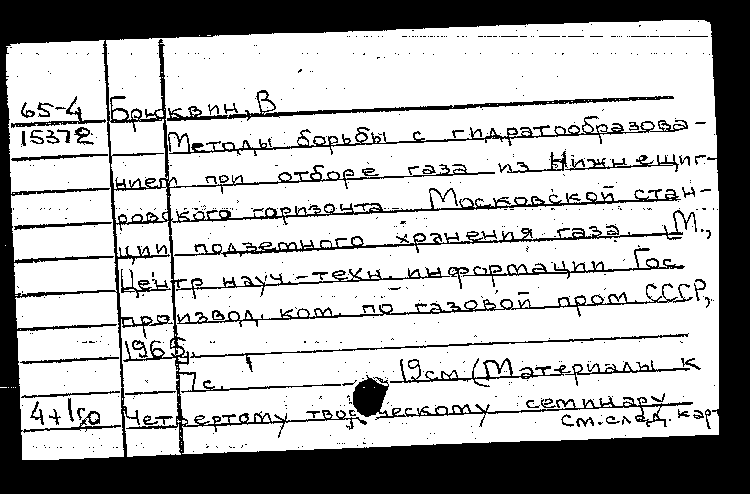 65-4 Брюквин, В
15372 Методы борьбы с гидратообразова-
нием при отборе газа из Нижнещиг-
ровского горизонта Московской стан-
ции подземного хранения газа. М.,
Центр науч.-техн. информации Гос
производ. ком. по газовой пром. СССР,
1965.
7с. 19см (Материалы к
Четвертому творческому семинару
см. след. карт